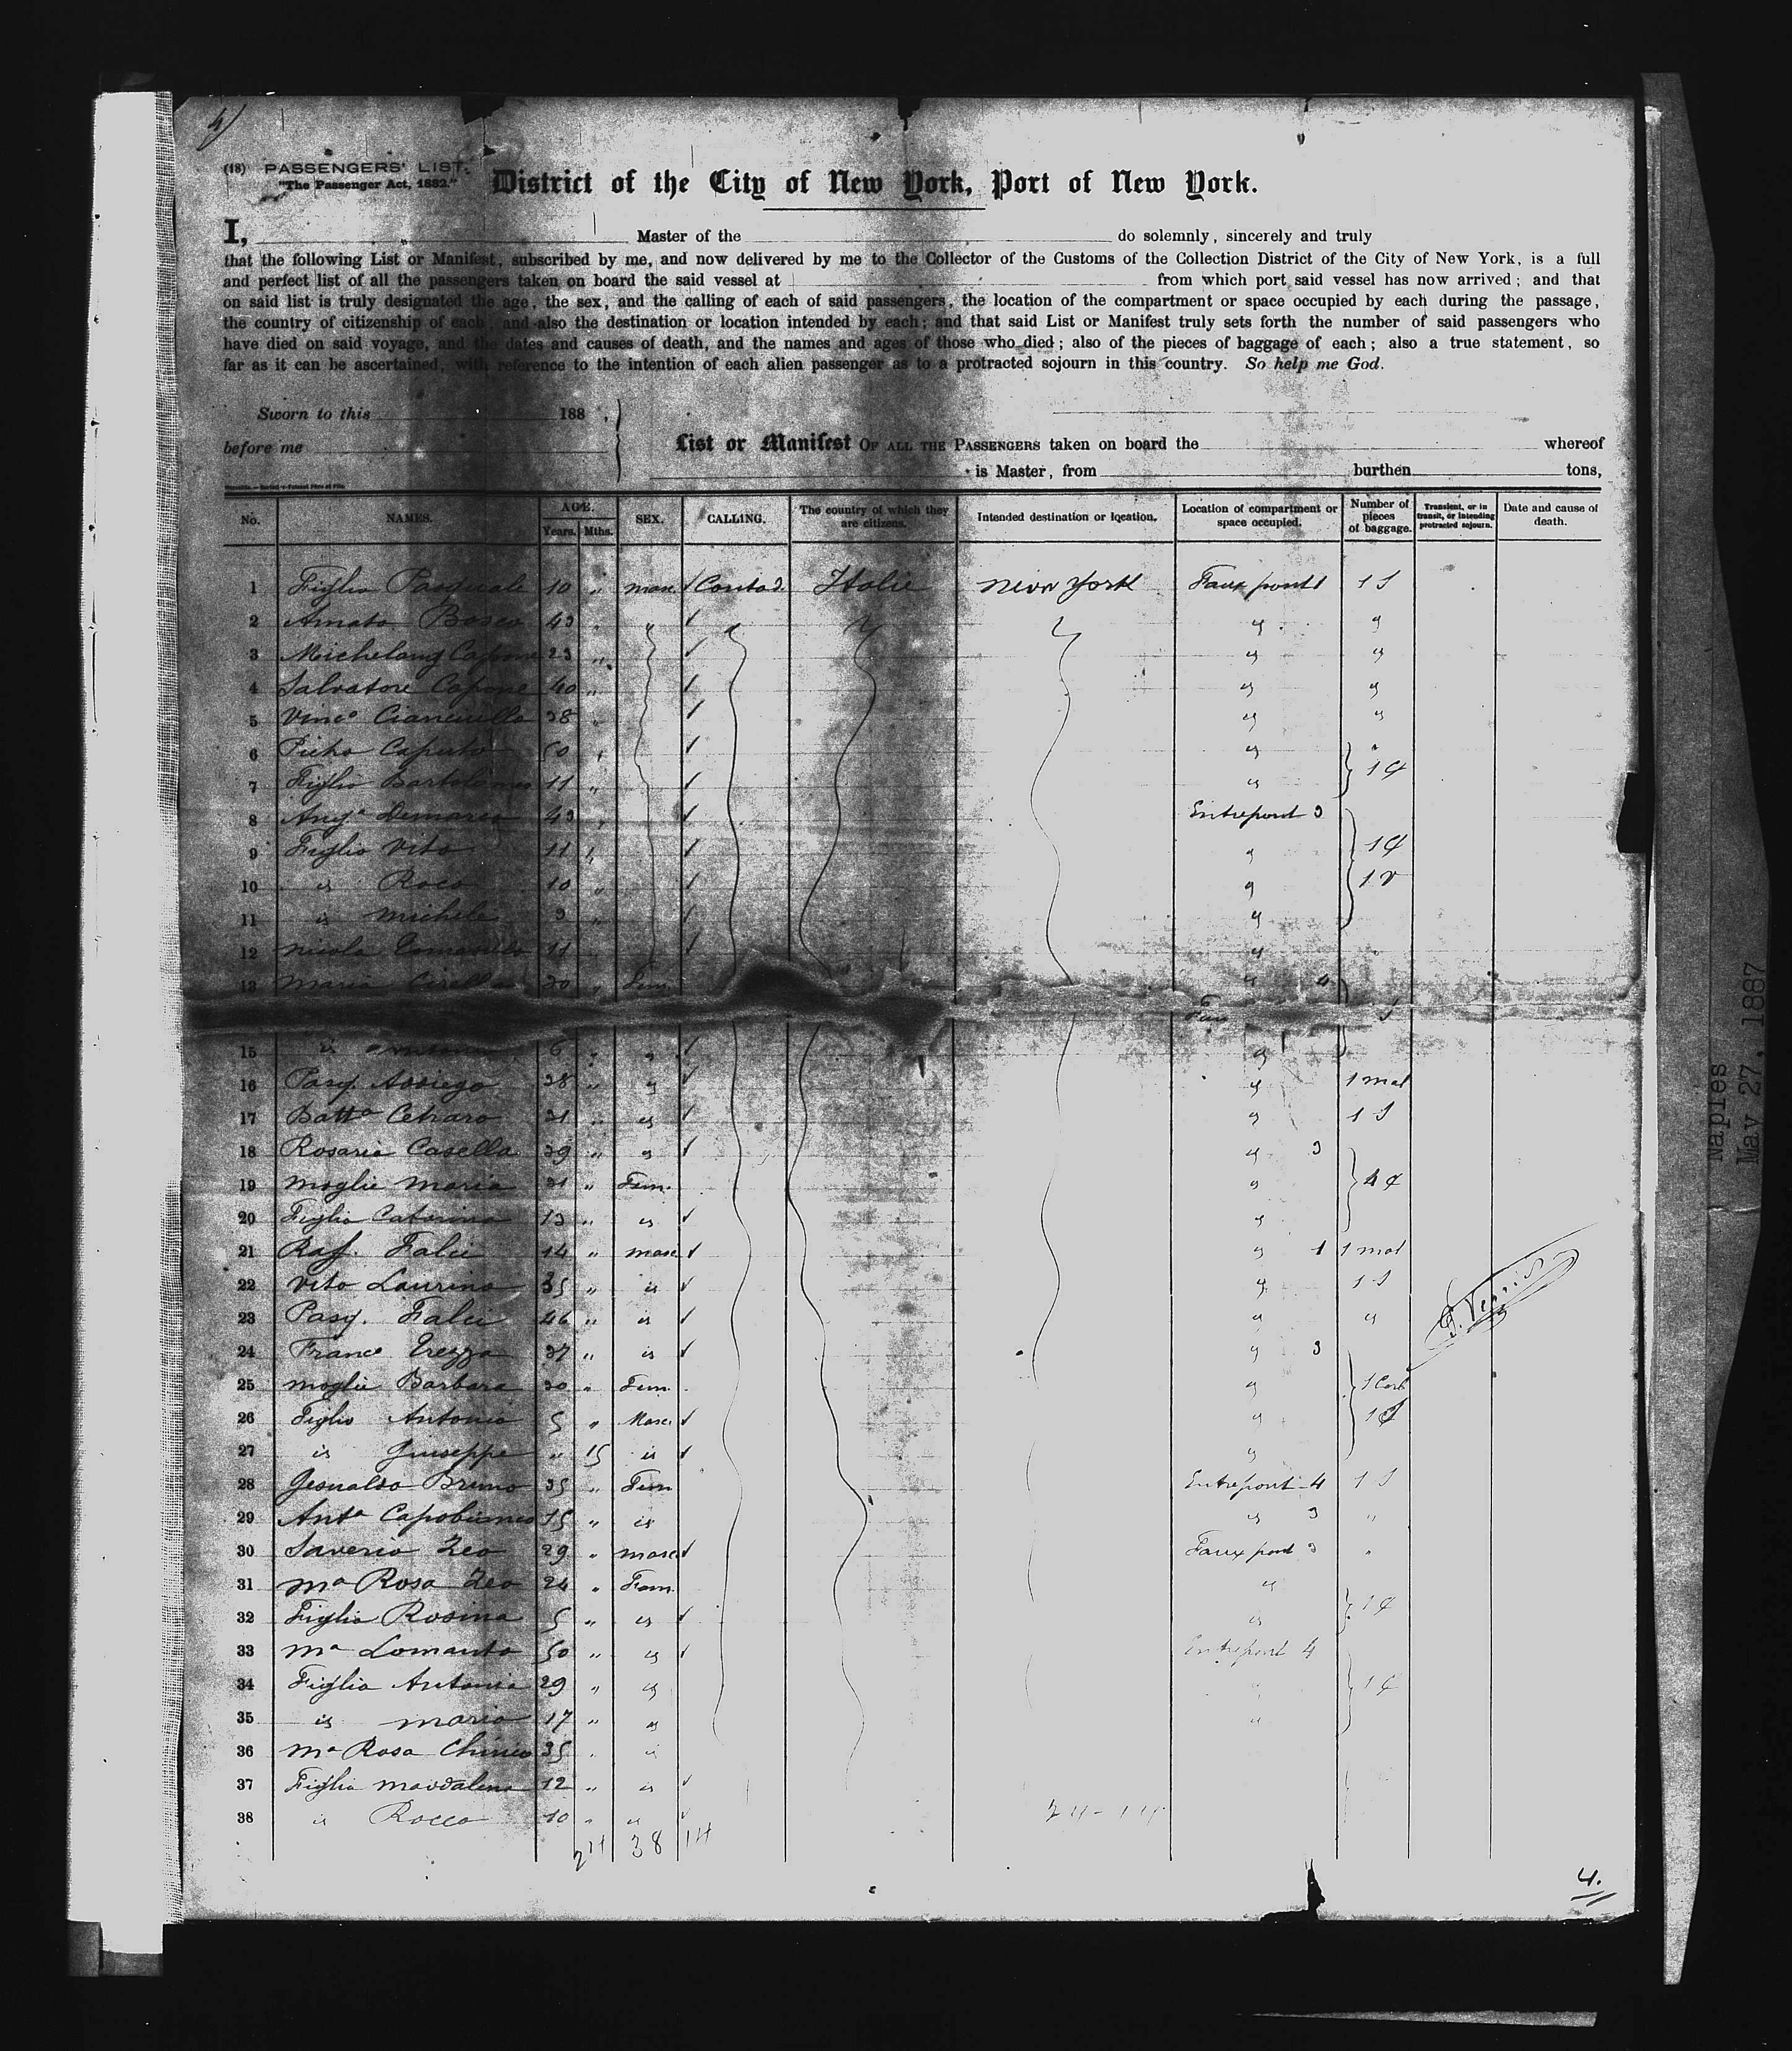 4)
(18) PASSENGERS' LIST.
"The Passenger Act, 1882."
District of the City of New York, Port of New York.
I, Master of the do solemnly, sincerely and truly
that the following List or Manifest, subscribed by me, and now delivered by me to the Collector of the Customs of the Collection District of the City of New York, is a full
and perfect list of all the passengers taken on board the said vessel at from which port said vessel has now arrived; and that
on said list is truly designated the age, the sex, and the calling of each of said passengers, the location of the compartment or space occupied by each during the passage,
the country of citizenship of each, and also the destination or location intended by each; and that said List or Manifest truly sets forth the number of said passengers who
have died on said voyage, and the dates and causes of death, and the names and ages of those who died; also of the pieces of baggage of each; also a true statement, so
far as it can be ascertained, with reference to the intention of each alien passenger as to a protracted sojourn in this country. So help me God.
Sworn to this 188 ,
before me
List or Manifest OF ALL THE PASSENGERS taken on board the whereof
is Master, from burthen tons,
No. NAMES. AGE. Years. Mths. SEX. CALLING. The country of which they are citizens. Intended destination or location. Location of compartment or space occupied. Number of pieces of baggage. Transient, or in transit, or intending protracted sojourn. Date and cause of death.
1 Figlio Pasquale 10 " masc Contad. Italie New York Faux pont 1 1 S
2 Amato Bosco 43 "
3 Michelang Capone 23 "
4 Salvatore Capone 40 "
5 Vinco Cianciullo 38 "
6 Pietro Caputo 50 "
7 Figlio Bartolomeo 11 " 1 C
8 Ang.a Demarco 43 " Entrepont 3
9 Figlio Vito 11 " 1 C
10 is Roco 10 " 1 V
11 is Michele 9 "
12 Nicola 11
13 Maria Cirella 30 " Fem 4
15 is Antonio 6 "
16 Pasq. 38 " 1 mal
17 Batta Cetraro 31 " is 1 S
18 Rosario Casella 39 " is 3
19 moglie Maria 31 " Fem. 4 C
20 Figlia Caterina 13 " is
21 Raf. Falce 14 " masc 1 1 mal
22 Vito Laurino 35 " is 1 S
23 Pasq. Falce 46 " is
24 Franco Trezza 37 " is 3
25 moglie Barbara 30 " Fem.
26 Figlio Antonio 5 " Masc. 1 C
27 is Giuseppe " 15 is
28 Gesualda Bruno 35 " Fem Entrepont 4 1 S
29 Anta Capobianco 15 " is 3 "
30 Saverio Zeo 29 " masc Faux pont 3 "
31 Ma Rosa Zeo 24 " Fem.
32 Figlia Rosina 5 " is 1 C
33 Ma Lomanto 50 " is Entrepont 4
34 Figlia Antonia 29 " is 1 C
35 is Maria 17 " is
36 Ma Rosa Chirico 35 " is
37 Figlia Maddalena 12 " is
38 is Rocco 10 " is
24 38 14
24 - 14
4.
Naples
May 27, 1887